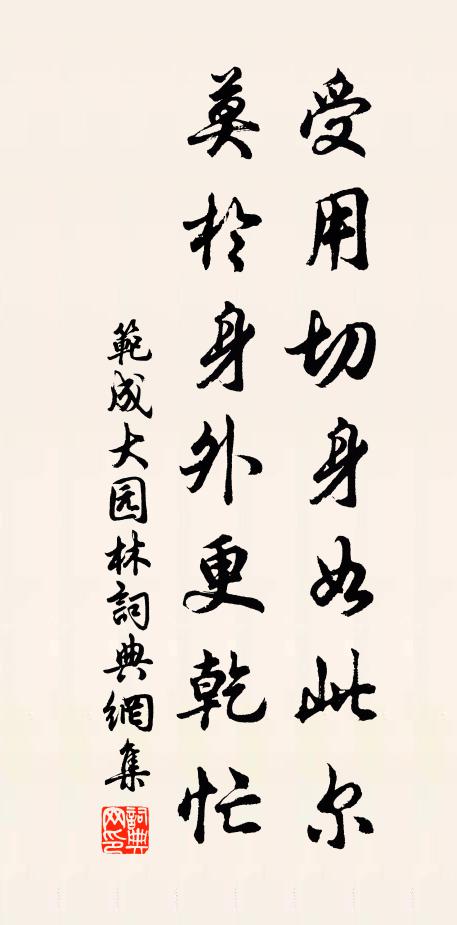 受用切身如此尔
莫於身外更乾忙
範成大园林詞典網集
詞典網印